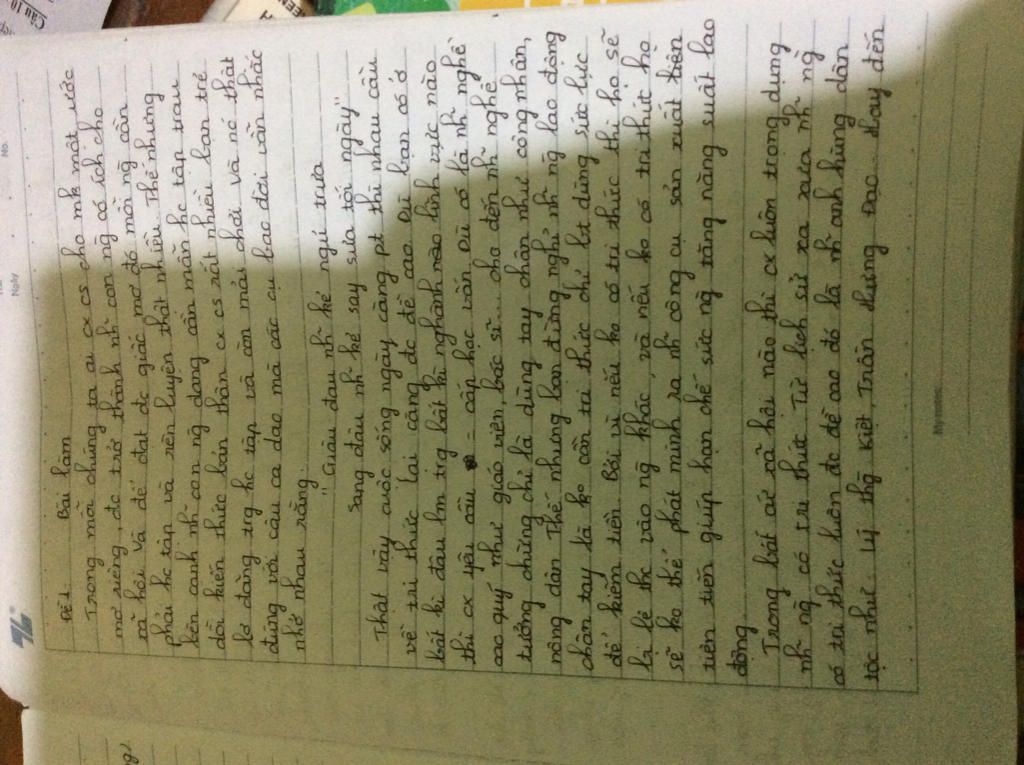 Câu 10
No.
Ngày
Đề1. Bài làm
Trong mỗi chúng ta ai cx cs cho mk một ước
mơ riêng, đc trở thành nh~ con ng~ có ích cho
xã hội và để đạt đc giấc mơ đó mỗi ng~ cần
phải hc tập và rèn luyện thật nhiều. Thế nhưng
bên cạnh nh~ con ng~ đang cần mẫn hc tập trau
dồi kiến thức bản thân cx cs rất nhiều bạn trẻ
lơ đãng trg hc tập và còn mải chơi và nó thật
đúng với câu ca dao mà các cụ bao đời vẫn nhắc
nhở nhau rằng.
"Giàu đâu nh~ kẻ ngủ trưa
Sang đâu nh~ kẻ say sưa tối ngày"
Thật vậy cuộc sống ngày càng pt thì nhau cầu
về tri thức lại càng đc đề cao. Dù bạn có ở
bất kì đâu lm trg bất kì nghành nào lĩnh vực nào
thì cx yêu cầu cấp học vấn. Dù có là nh~ nghề
cao quý như giáo viên, bác sĩ... cho đến nh~ nghề
tưởng chừng chỉ là dùng tay chân như công nhân,
nông dân. Thế nhưng bạn đừng nghĩ nh~ ng~ lao động
chân tay là ko cần tri thức chỉ bt dùng sức lực
để kiếm tiền. Bởi vì nếu ko có tri thức thì họ sẽ
bị lệ thc vào ng~ khác, và nếu ko có tri thức họ
sẽ ko thể phát minh ra nh~ công cụ sản xuất tiên
tiến giúp hạn chế sức ng~ tăng năng suất lao
động.
Trong bất cứ xã hội nào thì cx luôn trọng dụng
nh~ ng~ có tri thức. Từ lịch sử xa xưa nh~ ng~
có tri thức luôn đc đề cao đó là nh~ anh hùng dân
tộc như: Lý Thg Kiệt, Trần Hưng Đạo.. Hay đến